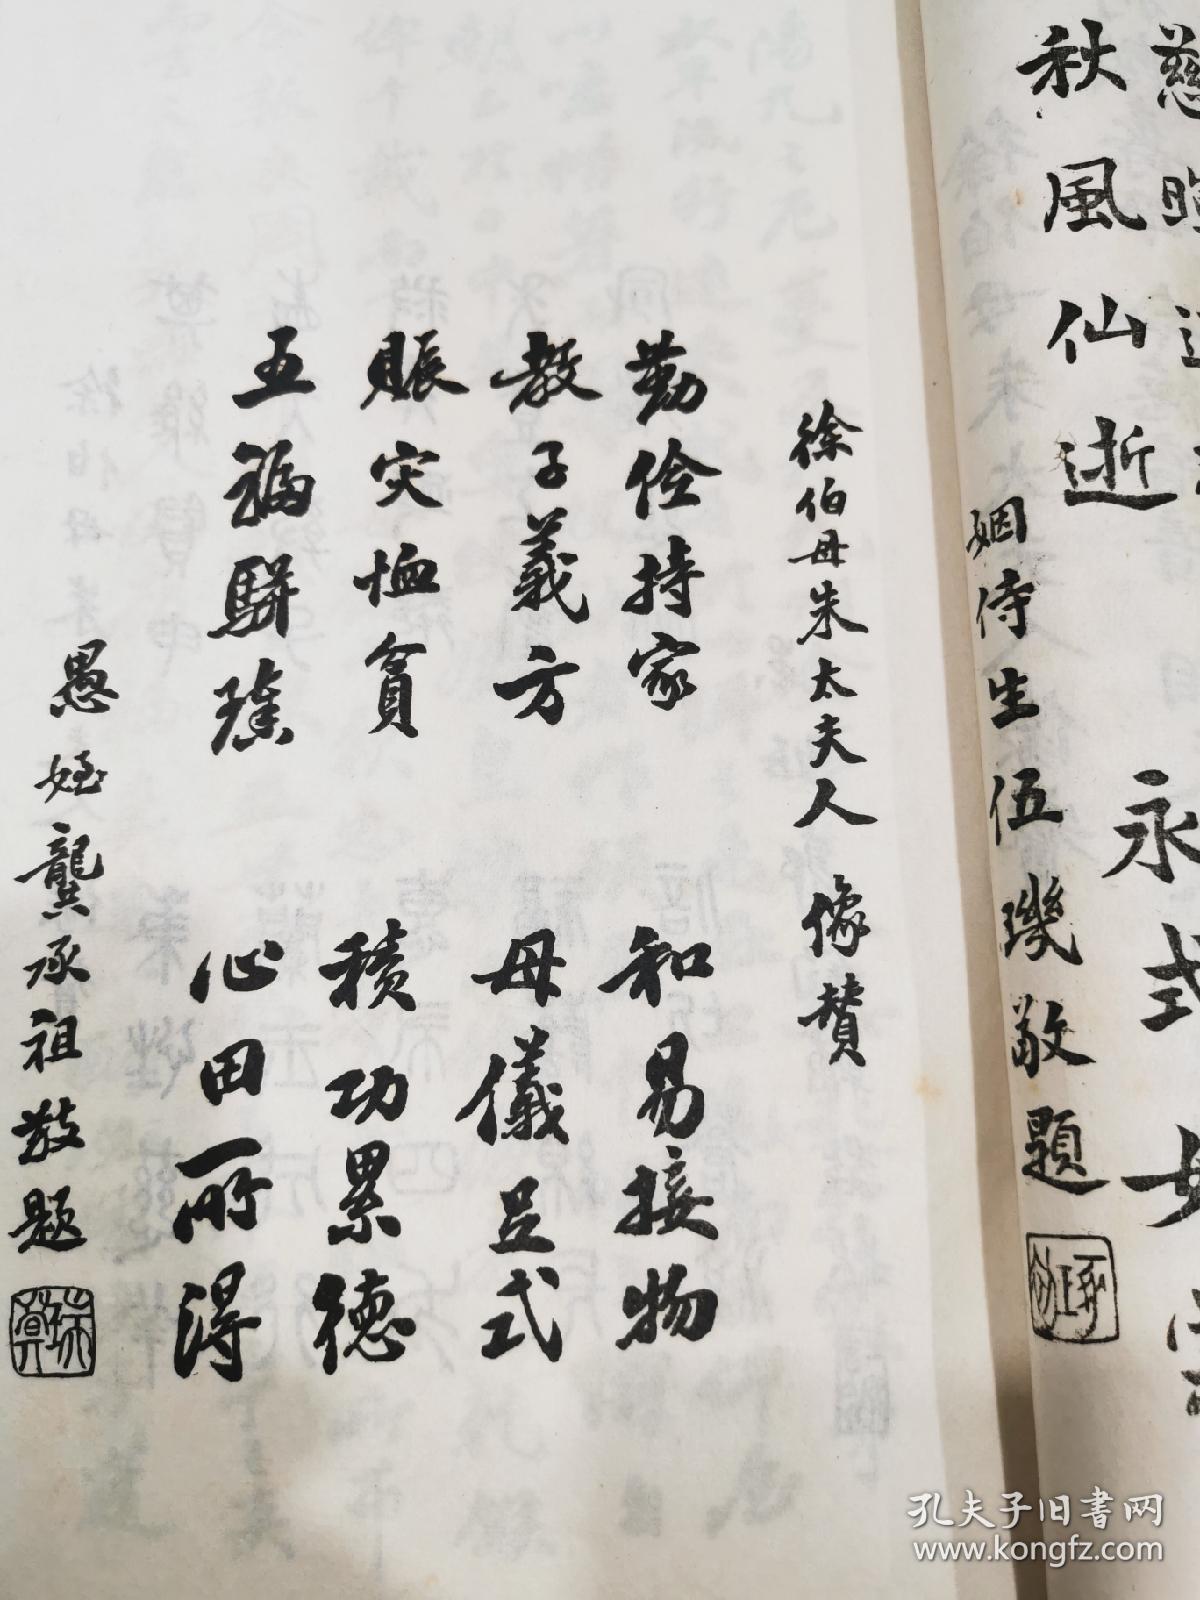 秋風仙逝
永式
姻侍生伍璣敬題
徐伯母朱太夫人像贊
勤儉持家 和易接物
教子義方 母儀足式
賑灾恤貧 積功累德
五福駢臻 心田所得
愚姪龔承祖敬題
孔夫子旧书网
www.kongfz.com